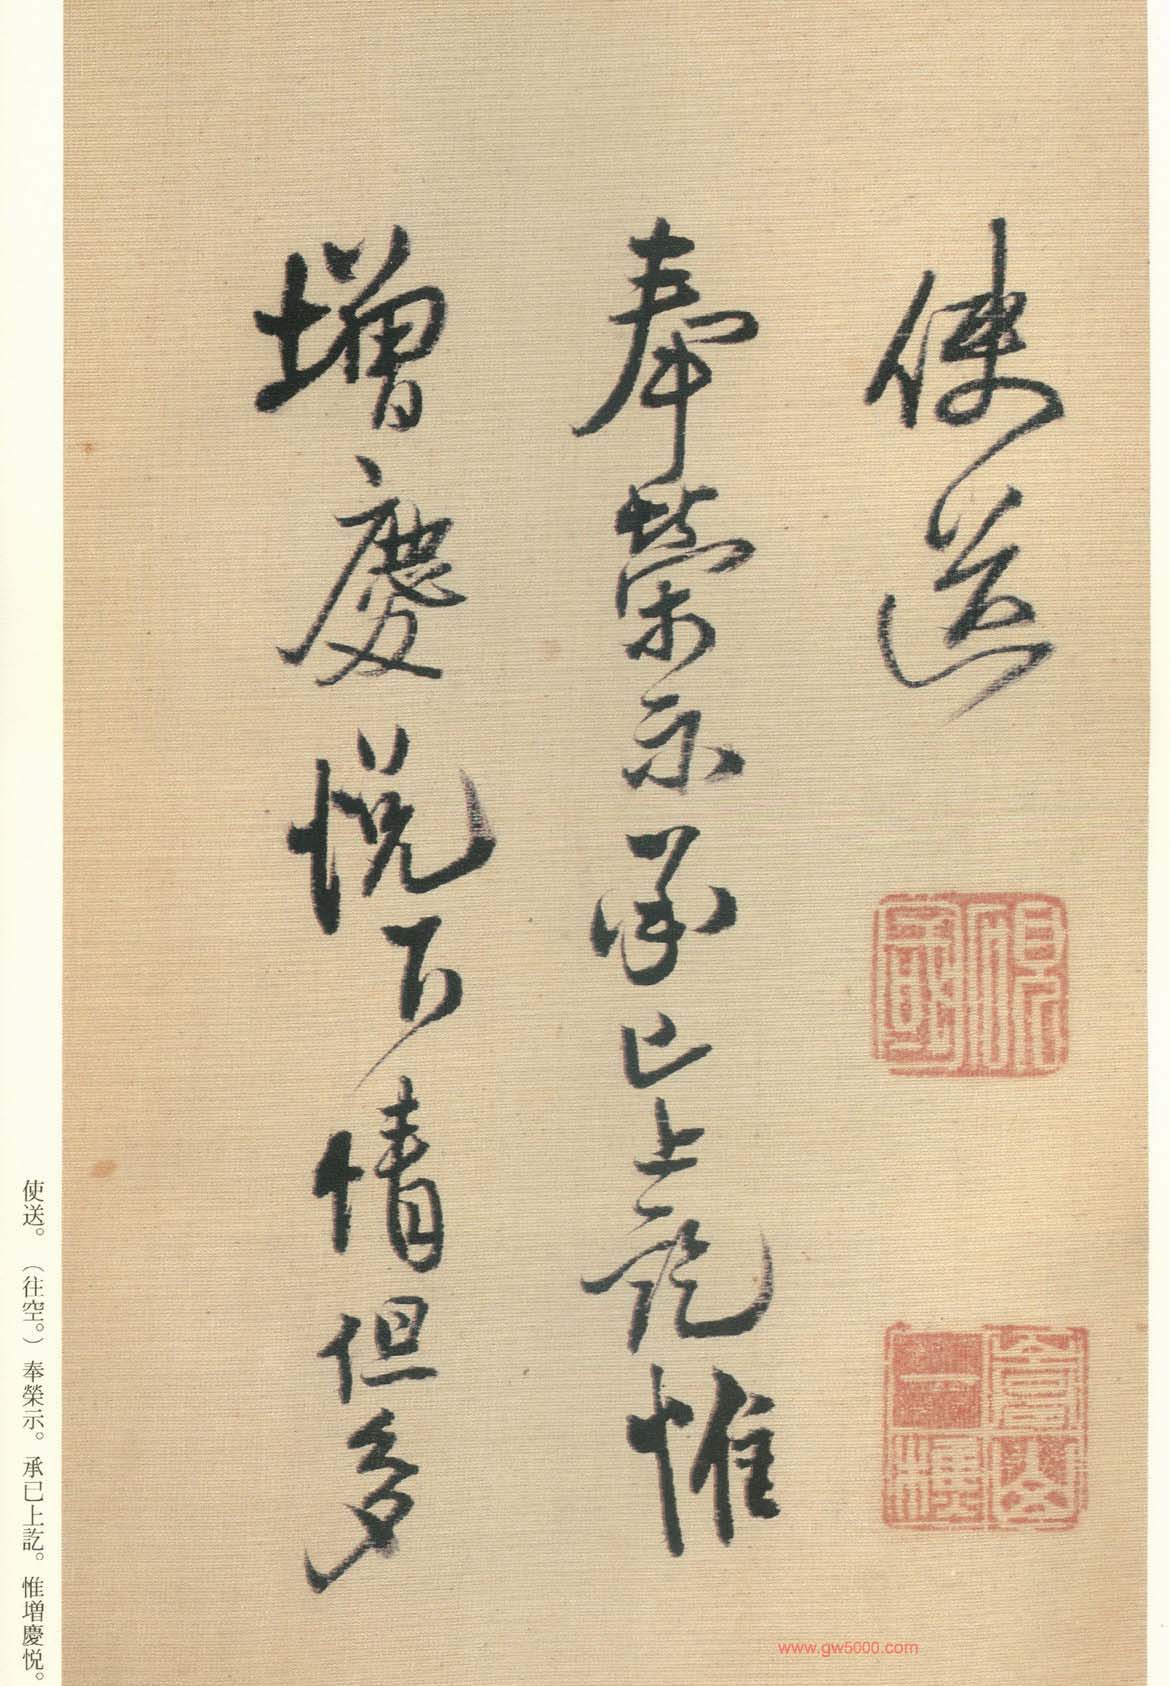 使送
奉榮示承已上訖惟
增慶悦下情但多
使送。（往空。）奉榮示。承已上訖。惟增慶悦。
www.gw5000.com